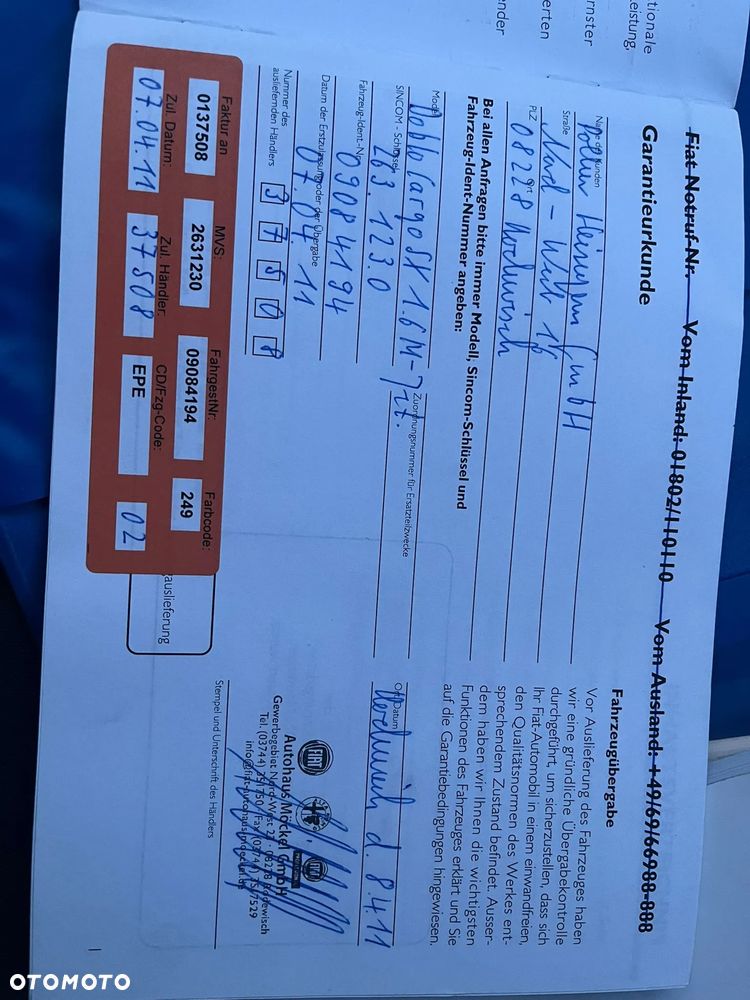 tionale
eistung.
rnster
erten
ender
Fiat Notruf-Nr. Vom Inland: 01802/110110 Vom Ausland: +49/69/66988-888
Garantieurkunde
Name des Kunden
GmbH
Straße
Nord-West 16
PLZ Ort
08228 Rodewisch
Bei allen Anfragen bitte immer Modell, Sincom-Schlüssel und
Fahrzeug-Ident-Nummer angeben:
Modell
Doblo Cargo SX 1.6 M-Jet.
SINCOM - Schlüssel
Zuordnungsnummer für Ersatzteilzwecke
263.123.0
Fahrzeug-Ident.-Nr.
09084194
Datum der Erstzulassung oder der Übergabe
07.04.11
Nummer des
ausliefernden Händlers
37508
Faktur an MVS: FahrgestNr: Farbcode:
0137508 2631230 09084194 249
Zul. Datum: Zul. Händler: CD/Fzg-Code:
07.04.11 37508 EPE 02
auslieferung
Fahrzeugübergabe
Vor Auslieferung des Fahrzeuges haben
wir eine gründliche Übergabekontrolle
durchgeführt, um sicherzustellen, dass sich
Ihr Fiat-Automobil in einem einwandfreien,
den Qualitätsnormen des Werkes ent-
sprechendem Zustand befindet. Ausser-
dem haben wir Ihnen die wichtigsten
Funktionen des Fahrzeuges erklärt und Sie
auf die Garantiebedingungen hingewiesen.
Ort/Datum
Rodewisch d. 8.4.11
FIAT
Autohaus Möckel GmbH
Gewerbegebiet Nord-West 22 · 08228 Rodewisch
Tel. (03744) Fax (03744)
Stempel und Unterschrift des Händlers
1
OTOMOTO